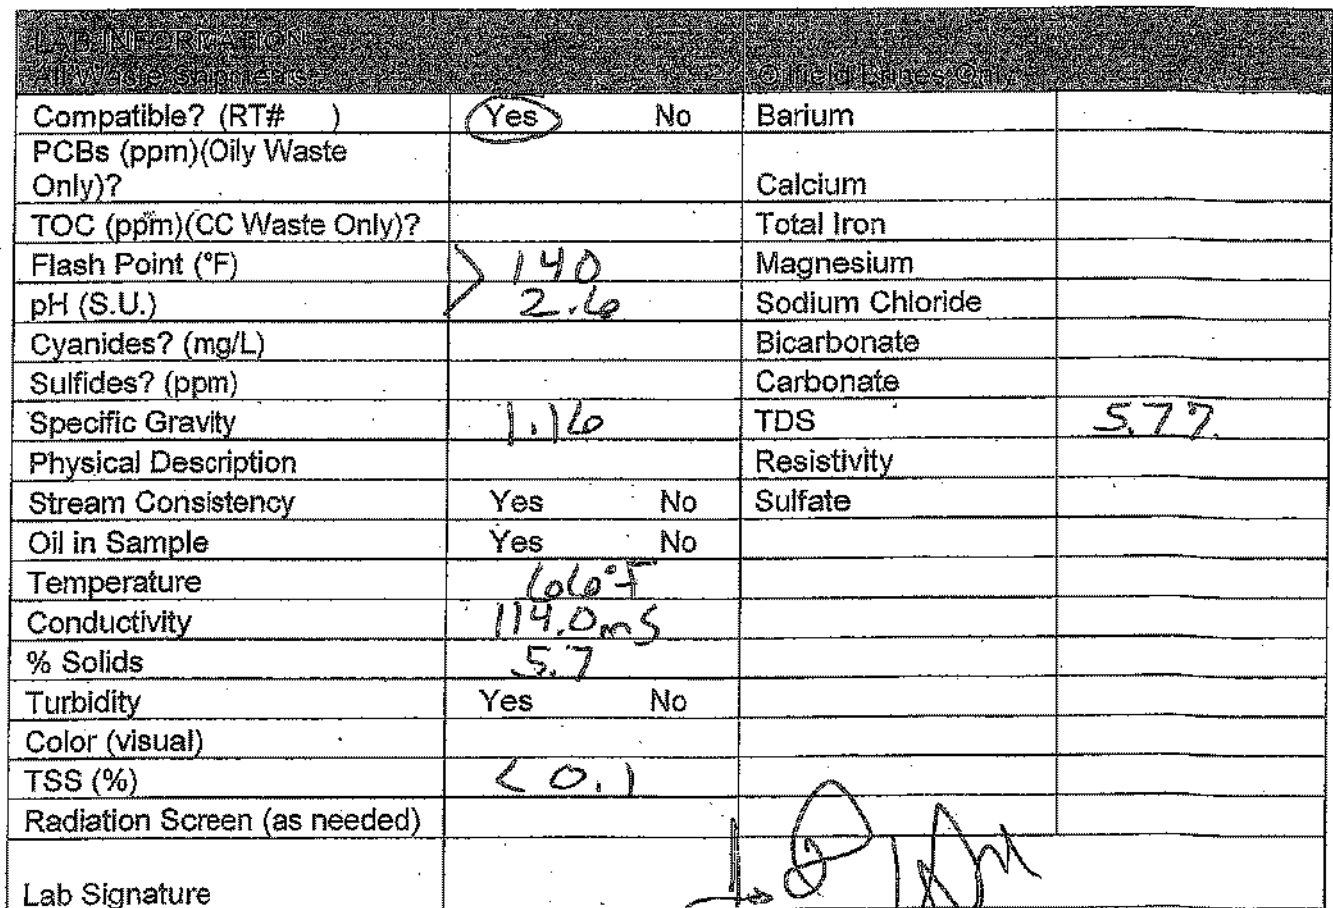 LAB INFORMATION
All Waste Shipments Oilfield Brines Only
Compatible? (RT# ) Yes No Barium
PCBs (ppm)(Oily Waste
Only)? Calcium
TOC (ppm)(CC Waste Only)? Total Iron
Flash Point (°F) > 140 Magnesium
pH (S.U.) 2.6 Sodium Chloride
Cyanides? (mg/L) Bicarbonate
Sulfides? (ppm) Carbonate
Specific Gravity 1.16 TDS 5.7%
Physical Description Resistivity
Stream Consistency Yes No Sulfate
Oil in Sample Yes No
Temperature 66°F
Conductivity 114.0 mS
% Solids 5.7
Turbidity Yes No
Color (visual)
TSS (%) < 0.1
Radiation Screen (as needed)
Lab Signature